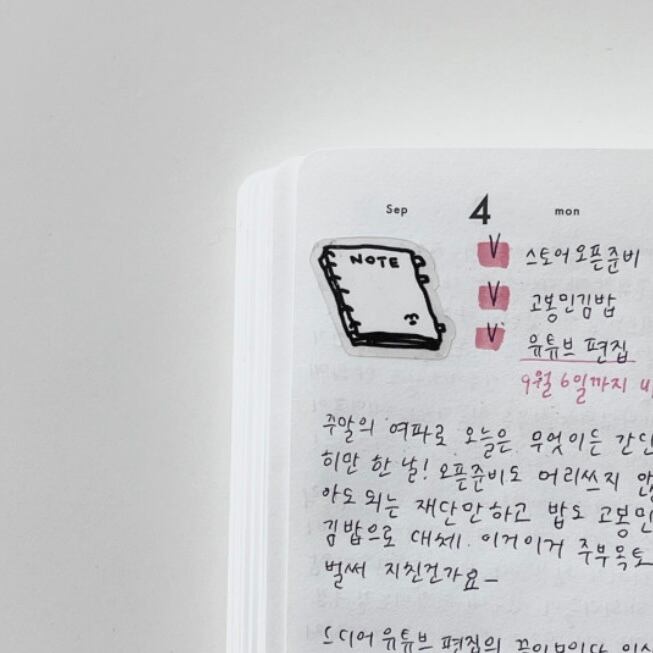 Sep 4 mon
NOTE
V 스토어 오픈준비
V 고봉민김밥
V 유튜브 편집
9월 6일까지
주말의 여파로 오늘은 무엇이든 간단
히만 한 날! 오픈준비도 머리쓰지 않
아도 되는 재단만 하고 밥도 고봉민
김밥으로 대체. 이거이거 주부목토
벌써 지친건가요-
드디어 유튜브 편집의 끝이보인다